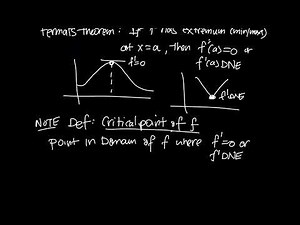 Fermat's Theorem: If f has extremum (min/max)
at x=a, then f'(a)=0 or
f'(a) DNE
f'=0
f' DNE
NOTE Def: Critical point of f
point in Domain of f where f'=0 or
f' DNE